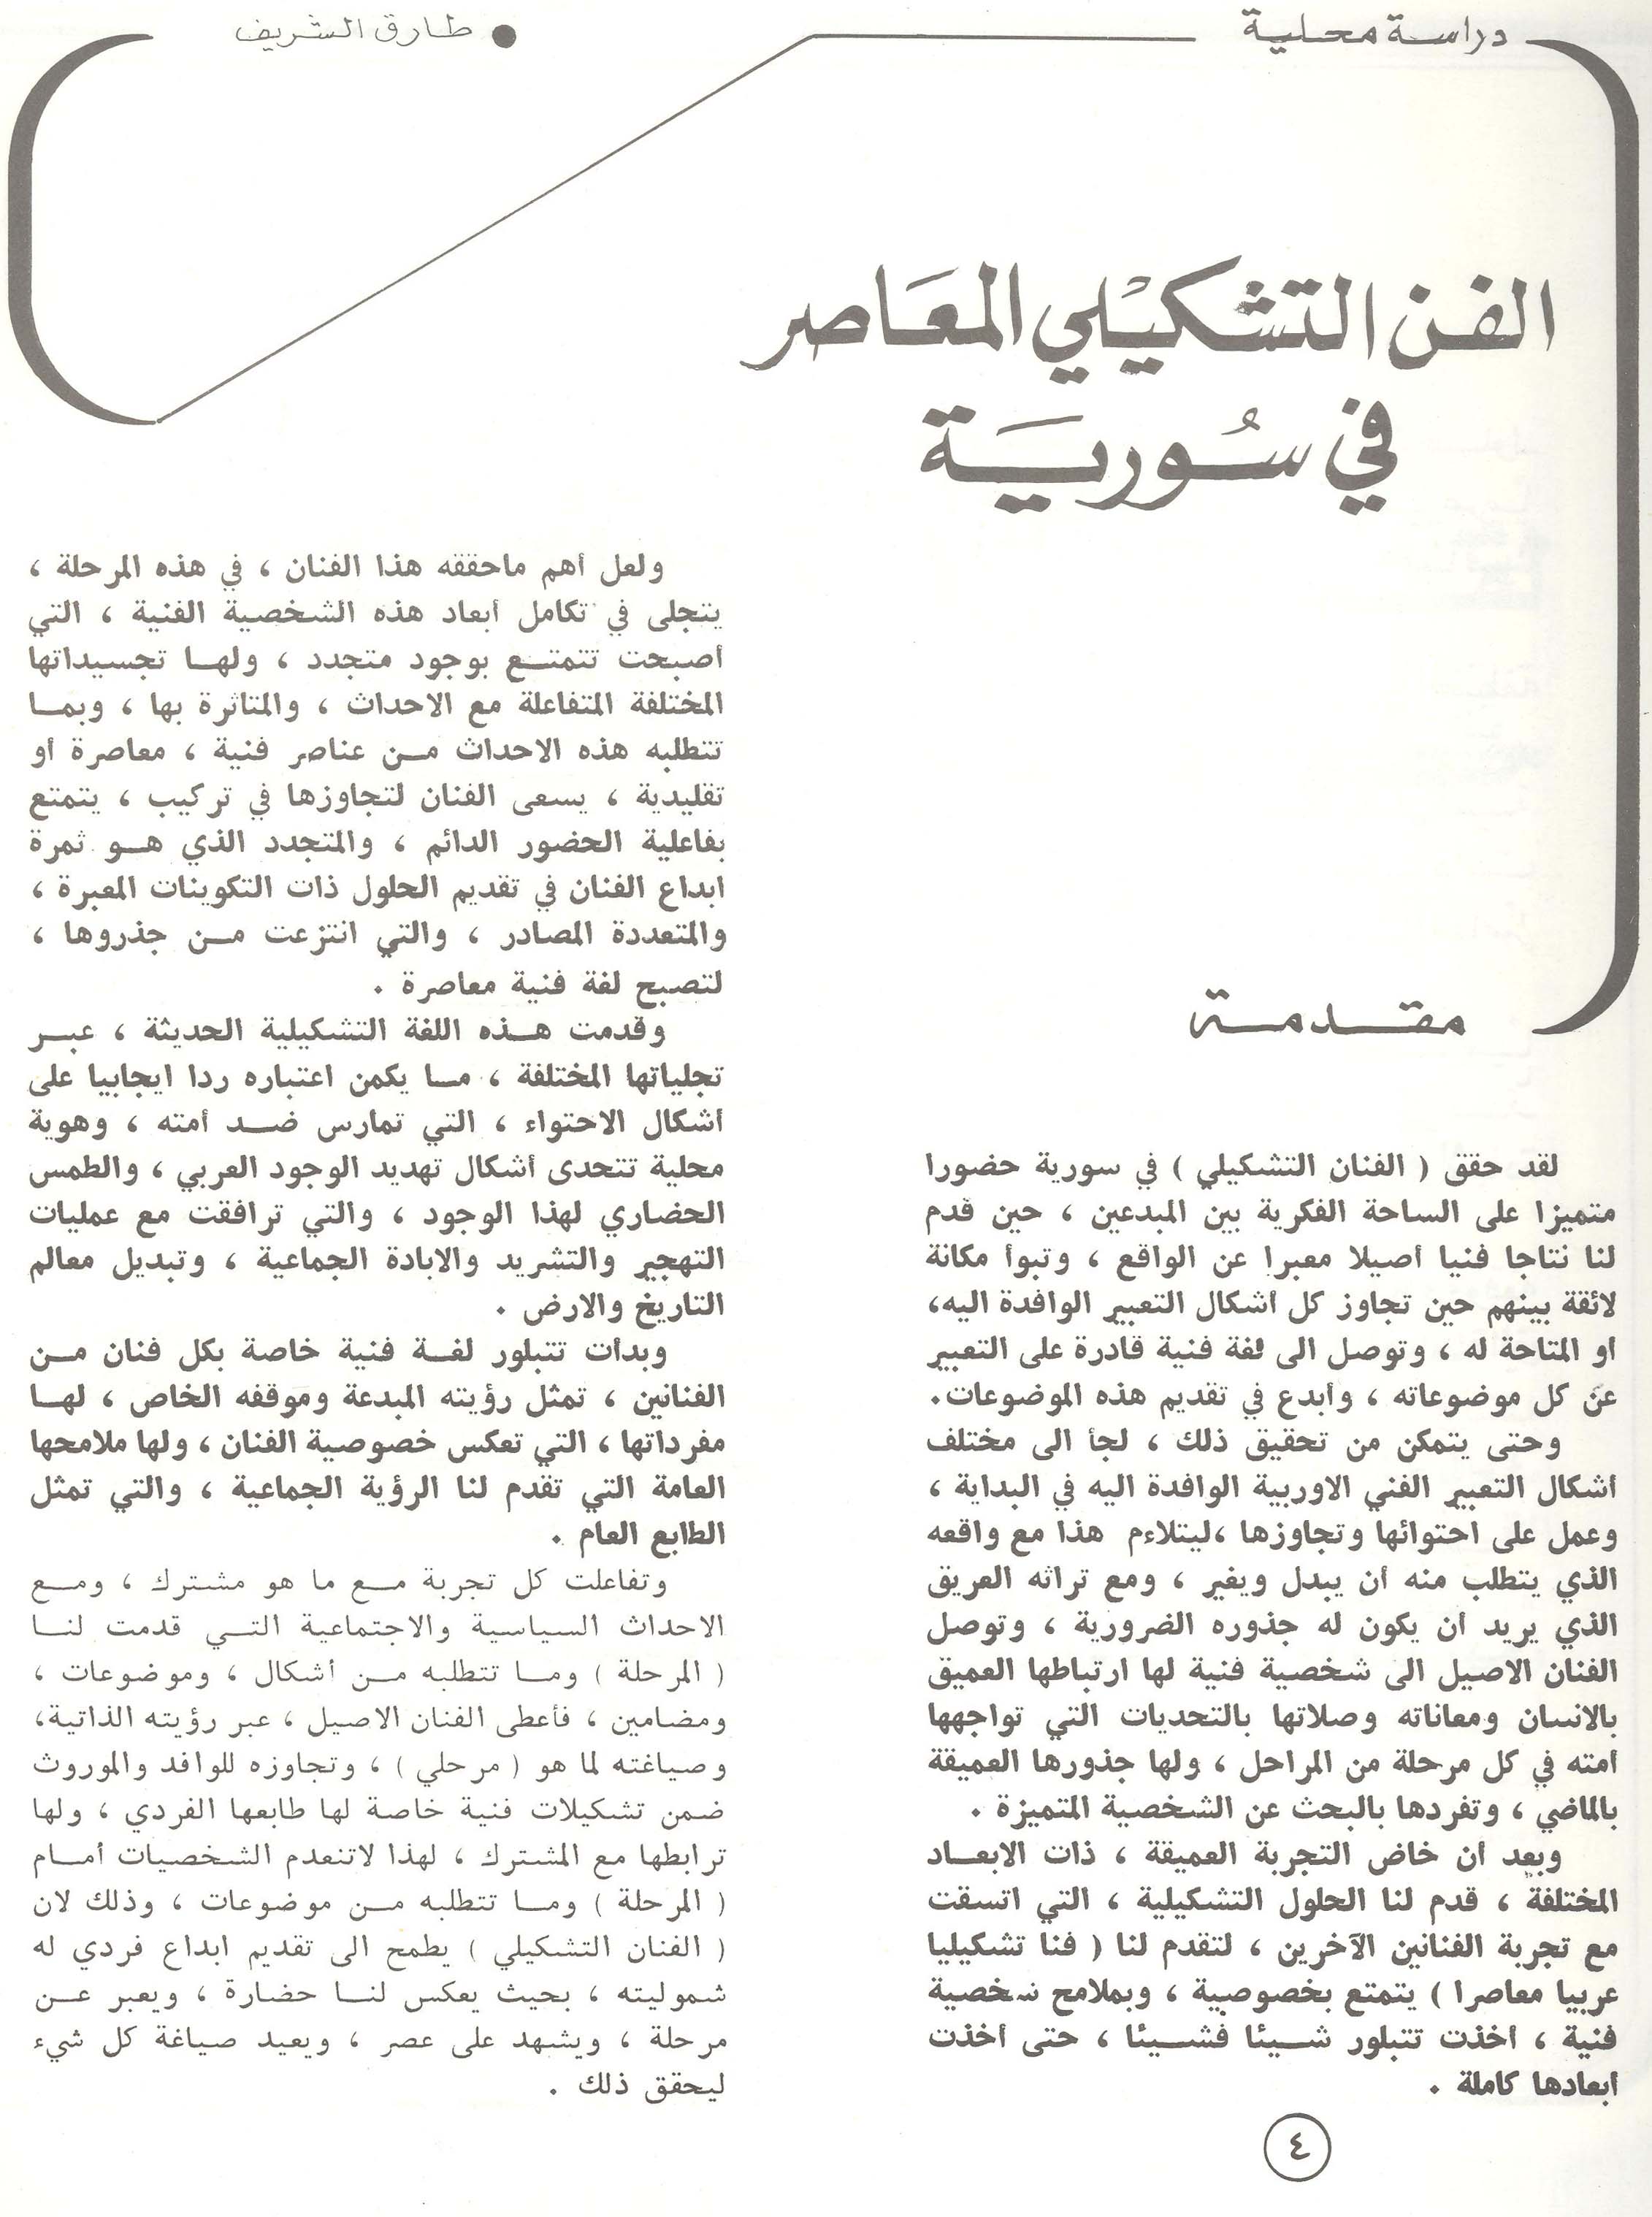 دراسة محلية
● طارق الشريف
الفن التشكيلي المعاصر
في سورية
مقدمة
لقد حقق ( الفنان التشكيلي ) في سورية حضورا
متميزا على الساحة الفكرية بين المبدعين ، حين قدم
لنا نتاجا فنيا أصيلا معبرا عن الواقع ، وتبوأ مكانة
لائقة بينهم حين تجاوز كل أشكال التعبير الوافدة اليه،
أو المتاحة له ، وتوصل الى لغة فنية قادرة على التعبير
عن كل موضوعاته ، وأبدع في تقديم هذه الموضوعات.
وحتى يتمكن من تحقيق ذلك ، لجأ الى مختلف
أشكال التعبير الفني الاوربية الوافدة اليه في البداية ،
وعمل على احتوائها وتجاوزها ،ليتلاءم هذا مع واقعه
الذي يتطلب منه أن يبدل ويغير ، ومع تراثه العريق
الذي يريد أن يكون له جذوره الضرورية ، وتوصل
الفنان الاصيل الى شخصية فنية لها ارتباطها العميق
بالانسان ومعاناته وصلاتها بالتحديات التي تواجهها
أمته في كل مرحلة من المراحل ، ولها جذورها العميقة
بالماضي ، وتفردها بالبحث عن الشخصية المتميزة .
وبعد أن خاض التجربة العميقة ، ذات الابعـاد
المختلفة ، قدم لنا الحلول التشكيلية ، التي اتسقت
مع تجربة الفنانين الآخرين ، لتقدم لنا ( فنا تشكيليا
عربيا معاصرا ) يتمتع بخصوصية ، وبملامح شخصية
فنية ، أخذت تتبلور شـيئا فشـيئا ، حتى أخذت
أبعادها كاملة .
ولعل أهم ماحققه هذا الفنان ، في هذه المرحلة ،
يتجلى في تكامل أبعاد هذه الشخصية الفنية ، التي
أصبحت تتمتـع بوجود متجدد ، ولهـا تجسيداتها
المختلفة المتفاعلة مع الاحداث ، والمتاثرة بها ، وبمـا
تتطلبه هذه الاحداث مـن عناصر فنية ، معاصرة أو
تقليدية ، يسعى الفنان لتجاوزها في تركيب ، يتمتع
بفاعلية الحضور الدائم ، والمتجدد الذي هـو ثمرة
ابداع الفنان في تقديم الحلول ذات التكوينات المعبرة ،
والمتعددة المصادر ، والتي انتزعت مـن جذروها ،
لتصبح لغة فنية معاصرة .
وقدمت هـذه اللغة التشكيلية الحديثة ، عبـر
تجلياتها المختلفة ، مـا يكمن اعتباره ردا ايجابيا على
أشكال الاحتواء ، التي تمارس ضـد أمته ، وهوية
محلية تتحدى أشكال تهديد الوجود العربي ، والطمس
الحضاري لهذا الوجود ، والتي ترافقت مع عمليات
التهجير والتشريد والابادة الجماعية ، وتبديل معالم
التاريخ والارض .
وبدأت تتبلور لغـة فنية خاصة بكل فنان مـن
الفنانين ، تمثل رؤيته المبدعة وموقفه الخاص ، لهـا
مفرداتها ، التي تعكس خصوصية الفنان ، ولها ملامحها
العامة التي تقدم لنا الرؤية الجماعية ، والتي تمثل
الطابع العام .
وتفاعلت كل تجربة مـع ما هو مشترك ، ومـع
الاحداث السياسية والاجتماعية التـي قدمت لنـا
( المرحلة ) ومـا تتطلبه مـن أشكال ، وموضوعات ،
ومضامين ، فأعطى الفنان الاصيل ، عبر رؤيته الذاتية،
وصياغته لما هو ( مرحلي ) ، وتجاوزه للوافد والموروث
ضمن تشكيلات فنية خاصة لها طابعها الفردي ، ولها
ترابطها مع المشترك ، لهذا لاتنعدم الشخصيات أمـام
( المرحلة ) ومـا تتطلبه مـن موضوعات ، وذلك لان
( الفنان التشكيلي ) يطمح الى تقديم ابداع فردي له
شموليته ، بحيث يعكس لنـا حضارة ، ويعبر عـن
مرحلة ، ويشهد على عصر ، ويعيد صياغة كل شيء
ليحقق ذلك .
٤